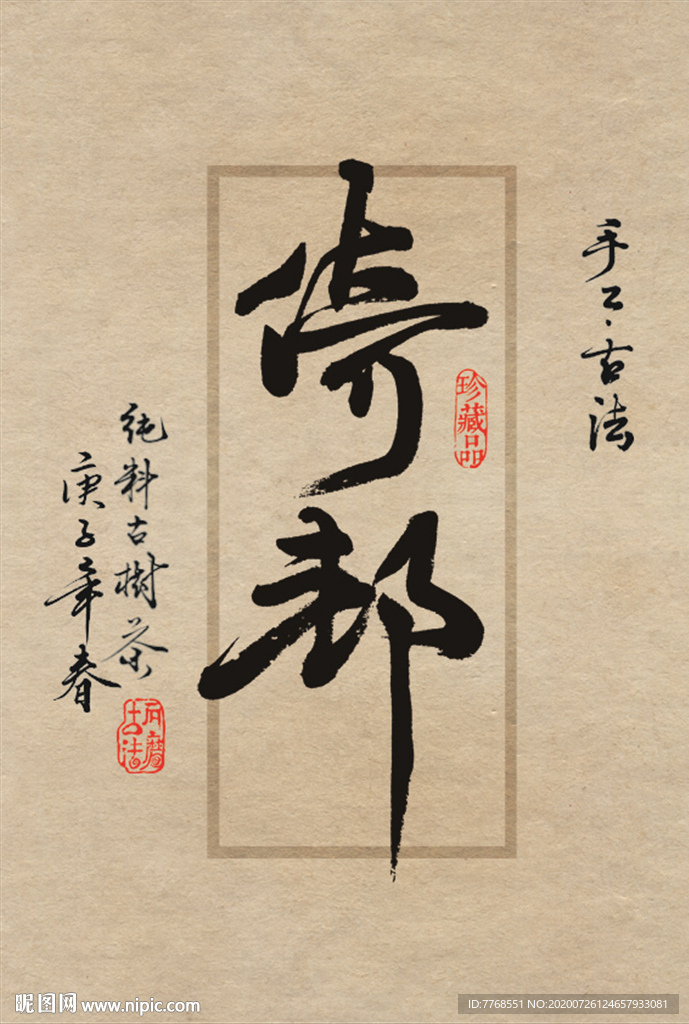 手工·古法
倚邦
珍藏品
纯料古樹茶
庚子年春
石磨古法
昵图网 www.nipic.com
ID:7768551 NO:20200726124657933081